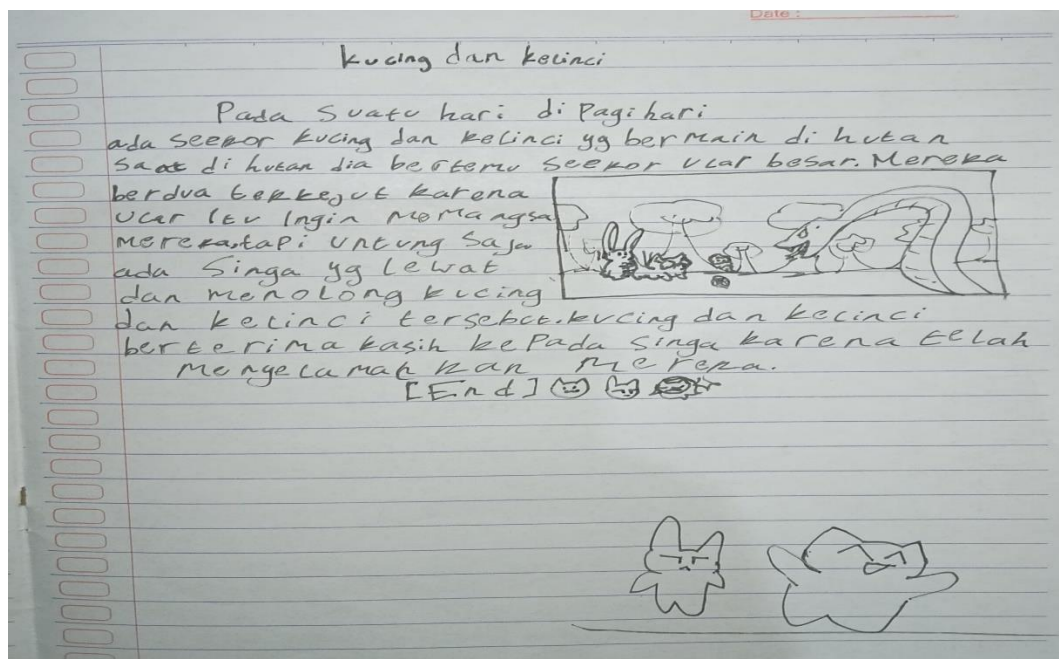 Date :
kucing dan kelinci
Pada suatu hari di Pagi hari
ada seekor kucing dan kelinci yg bermain di hutan
saat di hutan dia bertemu seekor ular besar. Mereka
berdua terkejut karena
ular itu Ingin Memangsa
Mereka, tapi untung saja
ada Singa yg lewat
dan menolong kucing
dan kelinci tersebut. kucing dan kelinci
berterima kasih kepada singa karena telah
Menyelamatkan Mereka.
[End]